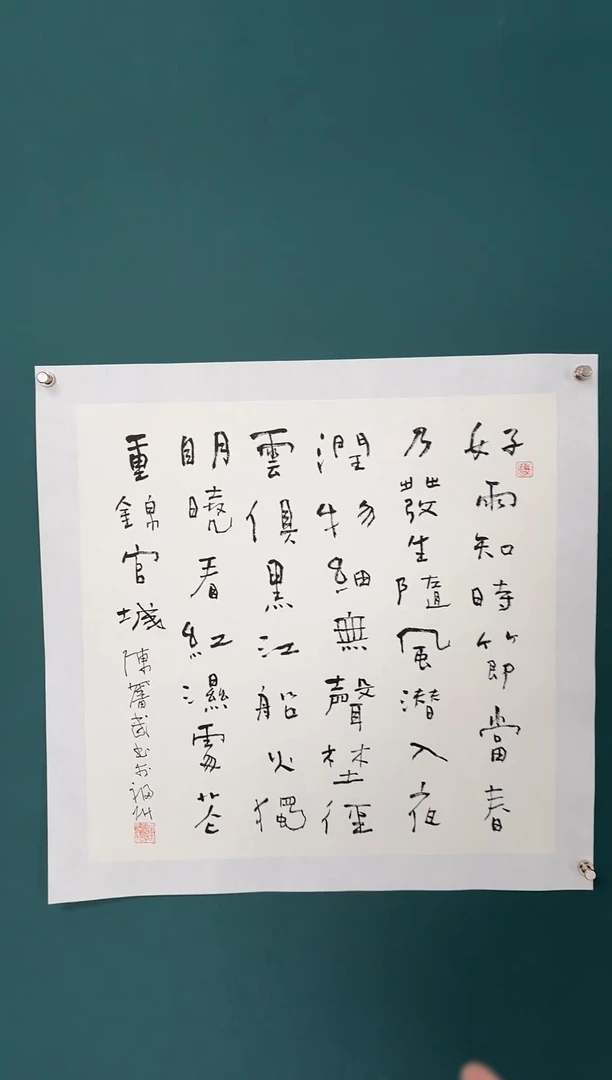 好雨知時節當春
乃發生隨風潜入夜
潤物細無聲埜徑
雲俱黑江船火獨
眀曉看紅濕處花
重錦官城
陳奮武書於福州